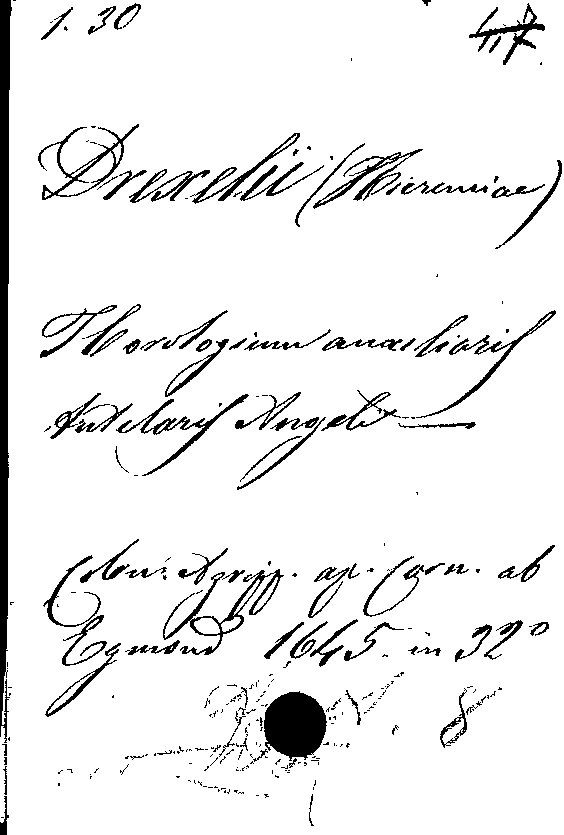 1. 30
Drexelii (Hieremiae)
Horologium auxiliaris
tutelaris Angeli
Colon: Agripp. ap. Corn. ab
Egmond 1645. in 32°
8